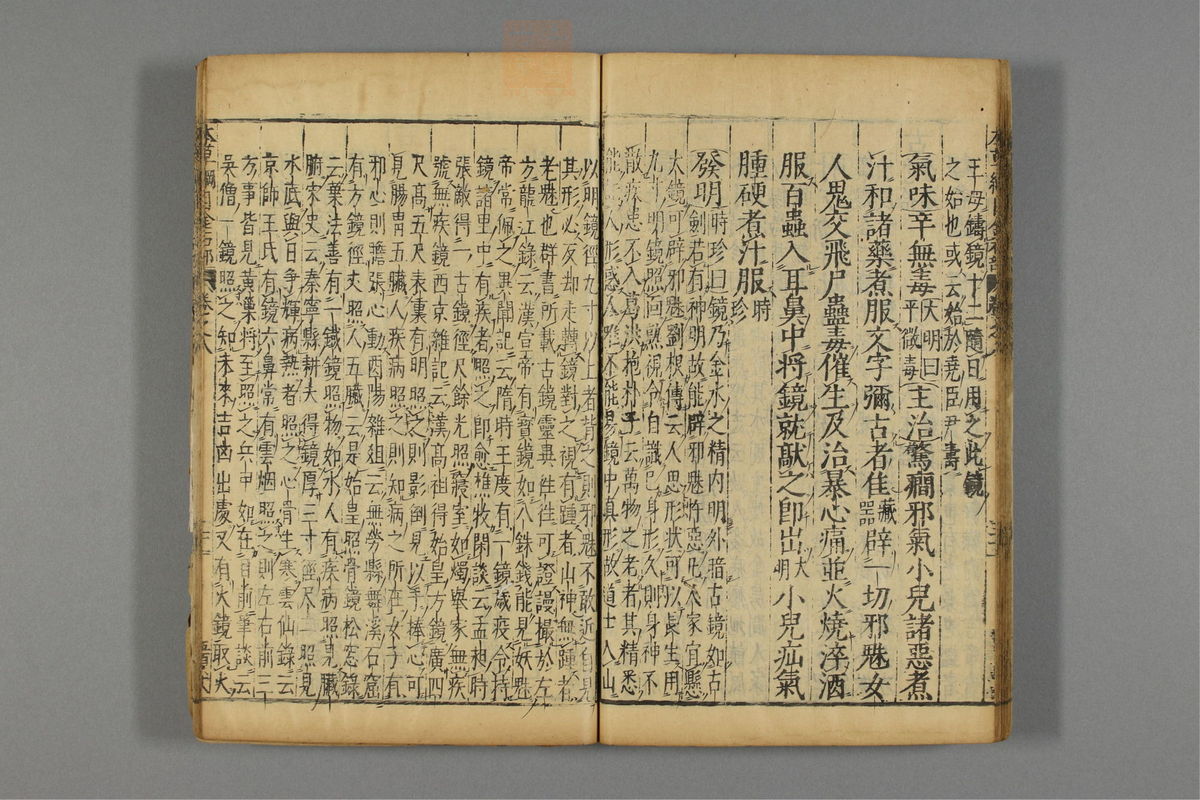 王母鑄鏡十二隨日用之此鏡
之始也或云始於堯臣尹壽
氣味辛無毒大明曰平微毒主治驚癇邪氣小兒諸惡煮
汁和諸藥煮服文字彌古者佳藏器辟一切邪魅女
人鬼交飛尸蠱毒催生及治暴心痛並火燒淬酒
服百蟲入耳鼻中将鏡就敲之即出大明小兒疝氣
腫硬煮汁服時珍
發明時珍曰鏡乃金水之精内明外暗古鏡如古
劍若有神明故能辟邪魅忤惡凡人家宜懸
大鏡可辟邪魅劉根傳云人思形状可以長生用
九寸明鏡照面熟視令自識已身形久則身神不
散疾患不入葛洪抱朴子云萬物之老者其精悉
能人形惑人唯不能易鏡中真形故道士入山
以明鏡徑九寸以上者背之則邪魅不敢近自見
其形必反却走轉鏡對之視有踵者山神無踵者
老魅也群書所載古鏡靈異徃徃可證謾撮於左
方龍江録云漢宣帝有寳鏡如八銖錢能見妖魅
帝常佩之異聞記云隋時王度有一鏡歲疫令持
鏡詣里中有疾者照之即愈樵牧閑談云孟昶時
張敵得一古鏡徑尺餘光照寢室如燭舉家無疾
號無疾鏡西京雜記云漢髙祖得始皇方鏡廣四
尺髙五尺表裏有明照之則影倒見以手捧心可
見腸胃五臓人疾病照之則知病之所在女子有
邪心則膽張心動酉陽雜俎云無勞縣舞溪石窟
有方鏡徑丈照人五臓云是始皇照骨鏡松窓録
云葉法善有一鐵鏡照物如水人有疾病照見臓
腑宋史云秦寧縣耕夫得鏡厚三寸徑尺二照見
水底與日争輝病熱者照之心骨生寒雲仙録云
京師王氏有鏡六鼻常有雲烟照之則左右前三
方事皆見黄巢将至照之兵甲如在目前筆談云
吳僧一鏡照之知未来吉凶出處又有火鏡取火